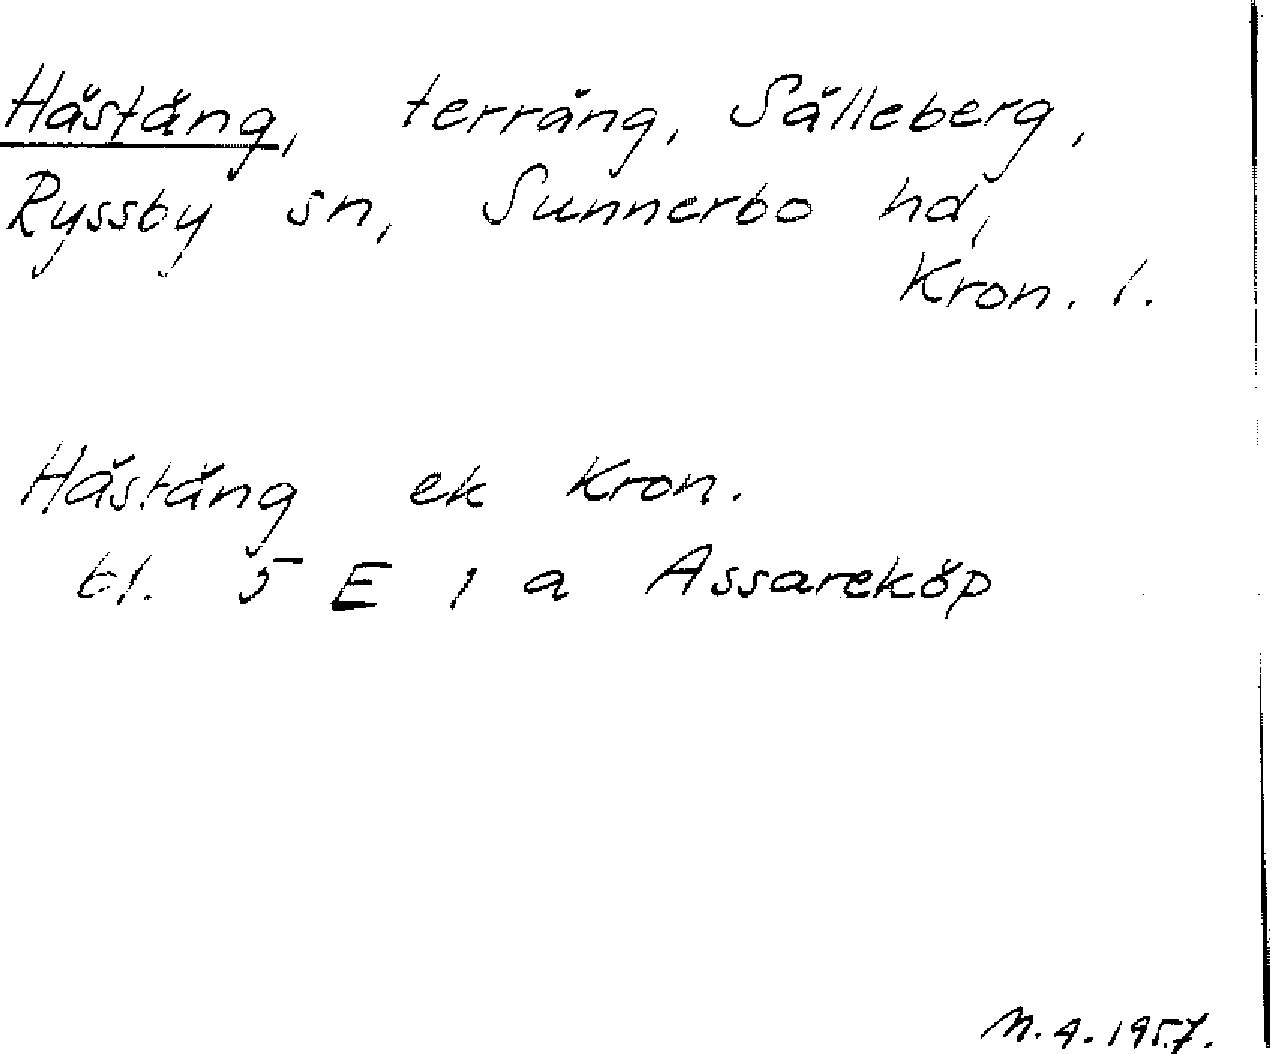 Hästäng, terräng, Sälleberg,
Ryssby sn, Sunnerbo hd,
Kron. l.
Hästäng ek Kron.
bl. 5 E 1 a Assareköp
N.A. 1957.